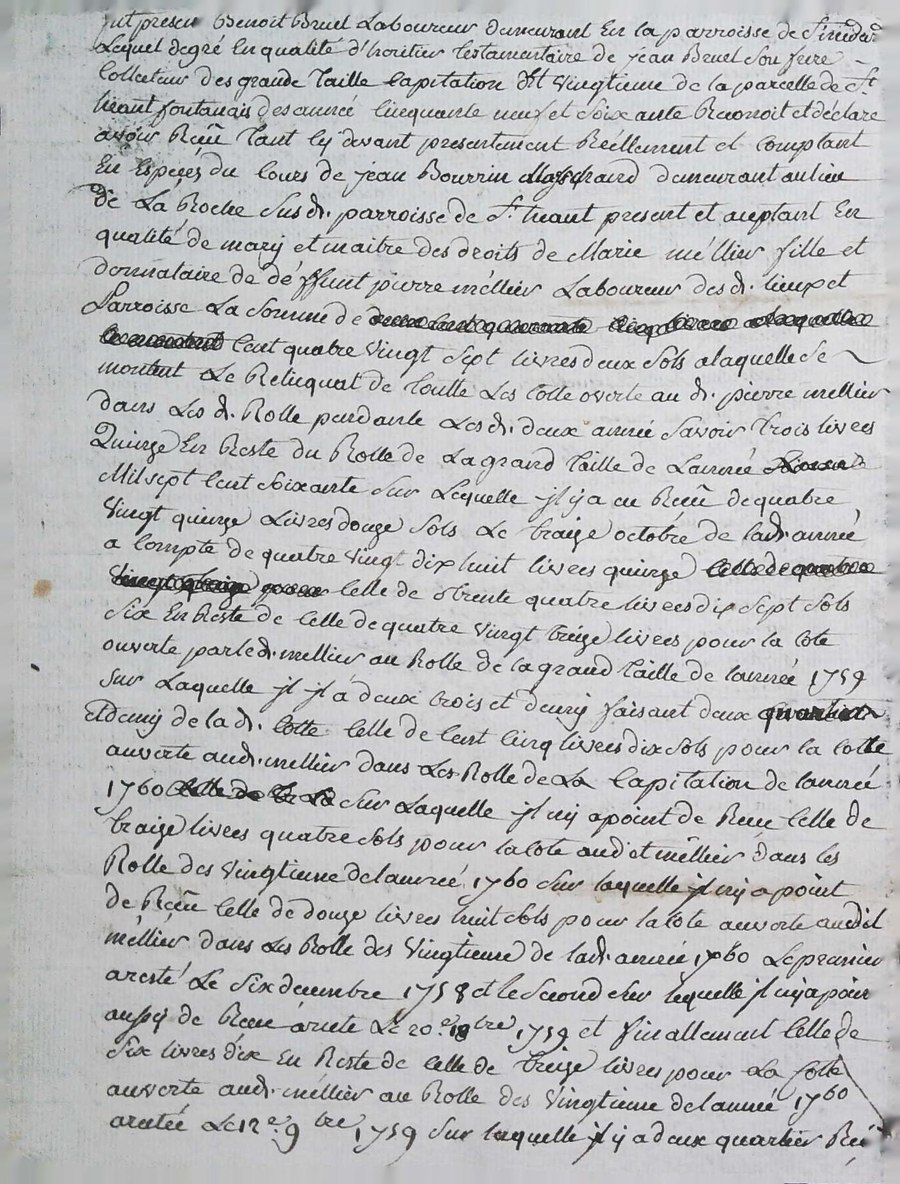 fut presen Benoit Bruel Laboureur demeurant En la parroisse de
Lequel degré En qualité d'heritier testamentaire de jean Bruel Son frere
Collecteur des grande Taille Capitation Et Vingtieme de la parcelle de St
heant fontanais des anneé Cinquante neuf et Soixante Reconoit et déclare
avoir Receu tant Cy devant presentement Réellement et Comptant
En Espeçes du Cours de jean Bourrin Marchand demeurant au lieu
de La Roche Sus d. parroisse de St heant present et acceptant En
qualité de mary et maitre des droits de Marie méllier fille et
donnataire de déffunt pierre méllier Laboureur des d. lieux et
Parroisse La Somme de
Cent quatre Vingt Sept livres deux Sols a laquelle Se
montent Le Relicquat de Toutte Les Cotte overte au d. pierre mellier
dans Les d. Rolle pandante Les d. deux anneé Savoir trois livres
Quinze En Reste du Rolle de La grand Taille de L'année
Mil sept Cent Soixante Sur Lequelle jl y a eu Receu de quatre
Vingt quinze Livres douze Sols Le traize octobre de lad. anneé
a Compte de quatre Vingt dix huit livres quinze
Celle de trente quatre livres dix Sept Sols
Six En Reste de Celle de quatre Vingt treize livres pour la Cote
ouverte par le d. mellier au Rolle de la grand Taille de l'anneé 1759
Sur Laquelle jl y a deux trois et demy faisant deux
Et demy de la d. Cotte Celle de Cent Cinq livres dix Sols pour la Cotte
auverte aud. méllier dans Les Rolle de La Capitation de l'anneé
1760 Sur Laquelle jl ny a point de Receu Celle de
traize livres quatre Sols pour la Cote audit méllier dans les
Rolle des Vingtieme de l'anneé 1760 Sur laquelle jl ny a point
de Receu Celle de douze livres huit Sols pour la Cote auverte audit
méllier dans Les Rolle des Vingtieme de lad. anneé 1760 Le premier
aresté Le Six decembre 1758 et le Second Sur lequelle jl ny a poin
aussy de Receu areste Le 20e 9bre 1759 et finallement Celle de
Six livres dix En Reste de Celle de treize livres pour La Cotte
auverte aud. méllier au Rolle des Vingtieme de l'anneé 1760
aretée Le 12e 9bre 1759 Sur laquelle jl y a deux quartier Receu